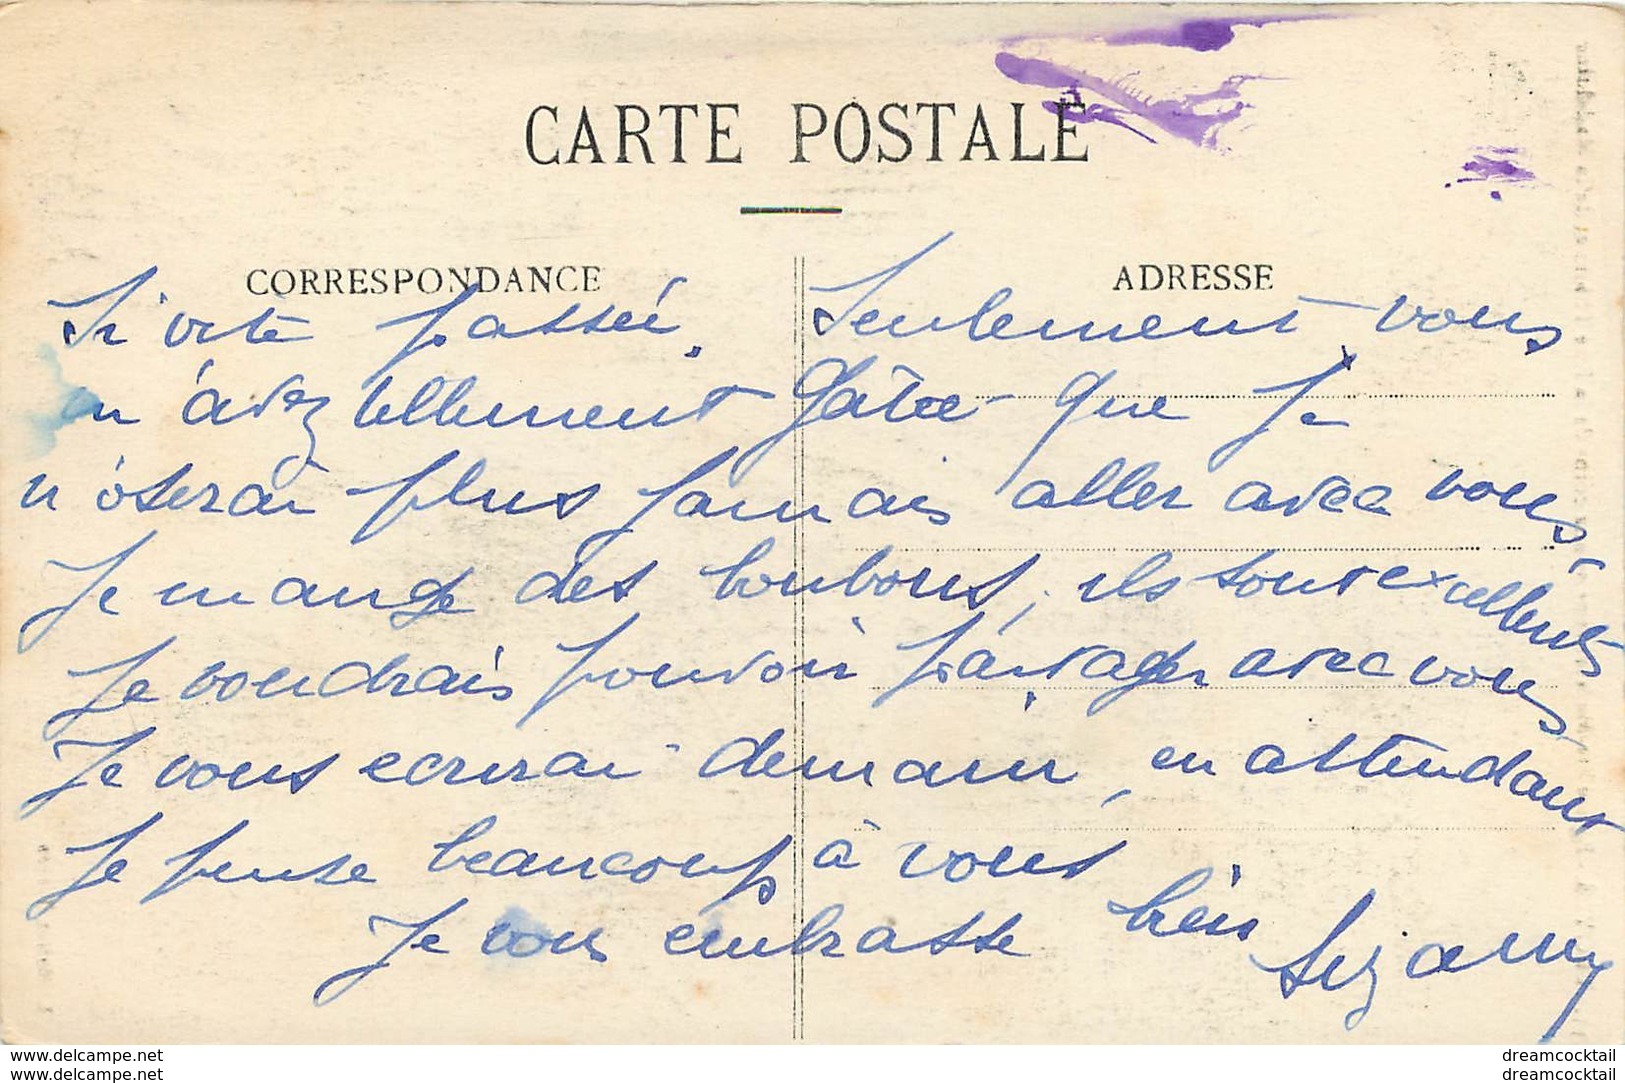 CARTE POSTALE
CORRESPONDANCE
ADRESSE
Si vite passée. Seulement vous
m'avez tellement gâtée que je
n'oserai plus jamais aller avec vous.
Je mange des bonbons, ils sont excellents
Je voudrais pouvoir partager avec vous
Je vous ecrirai demain, en attendant
Je pense beaucoup à vous
Je vous embrasse bien
www.delcampe.net
www.delcampe.net
dreamcocktail
dreamcocktail